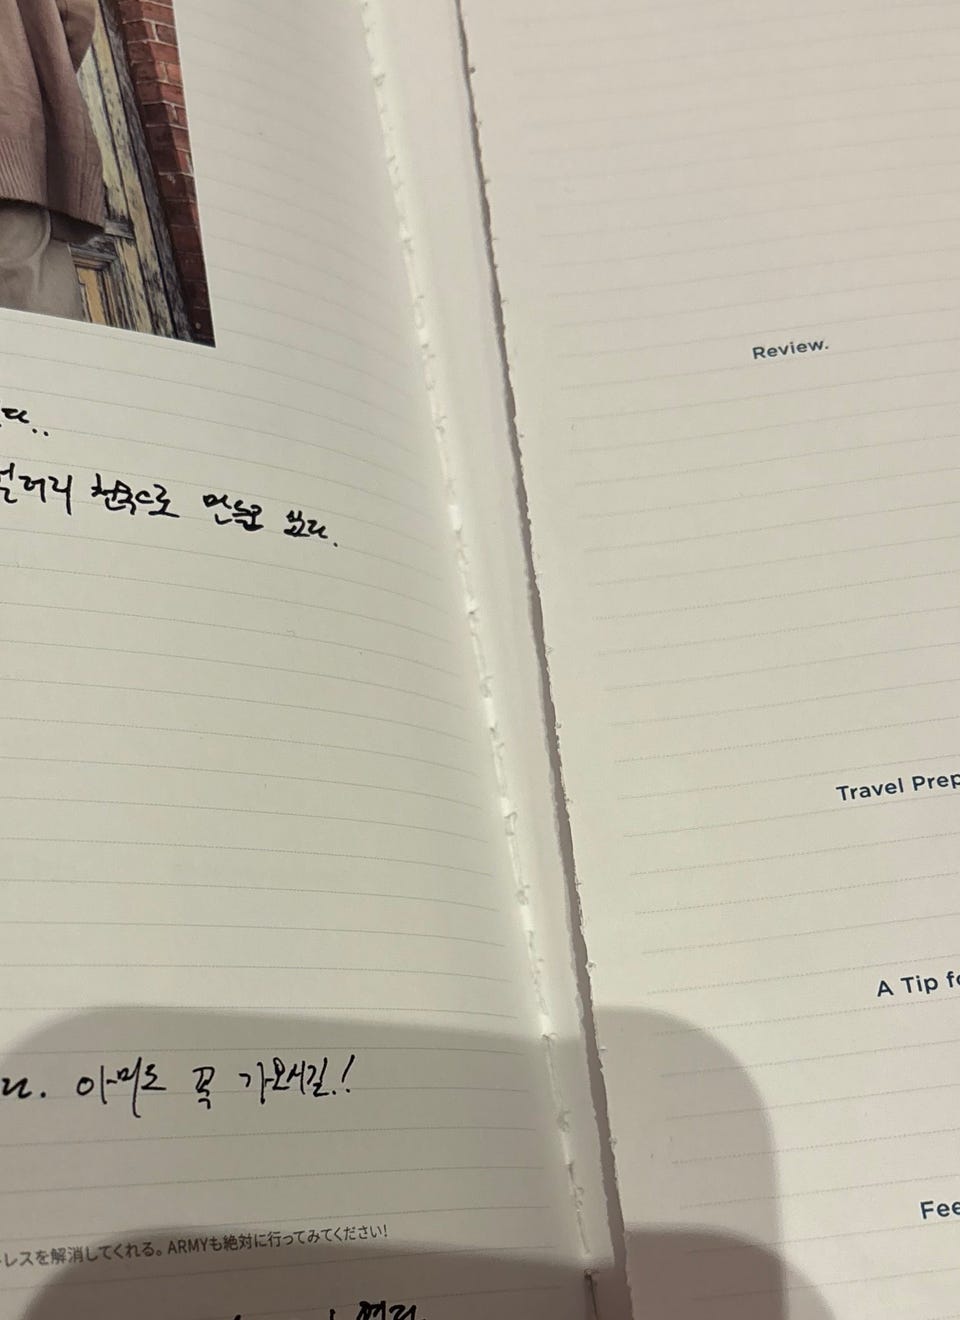 다..
천국으로 만들고 있다.
다. 아미도 꼭 가보시길!
レスを解消してくれる。ARMYも絶対に行ってみてください!
Review.
Travel Prep
A Tip fo
Fee